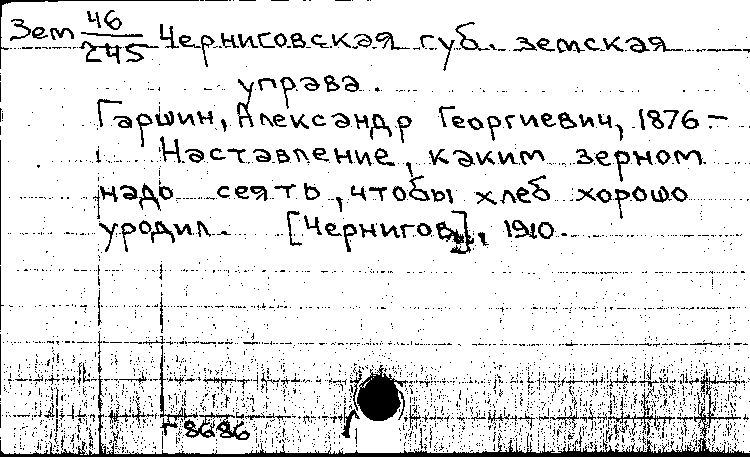 Зем 46/245 Черниговская губ. земская
управа.
Гаршин, Александр Георгиевич, 1876 -
Наставление, каким зерном
надо сеять, чтобы хлеб хорошо
уродил. [Чернигов], 1910.
Г-8686